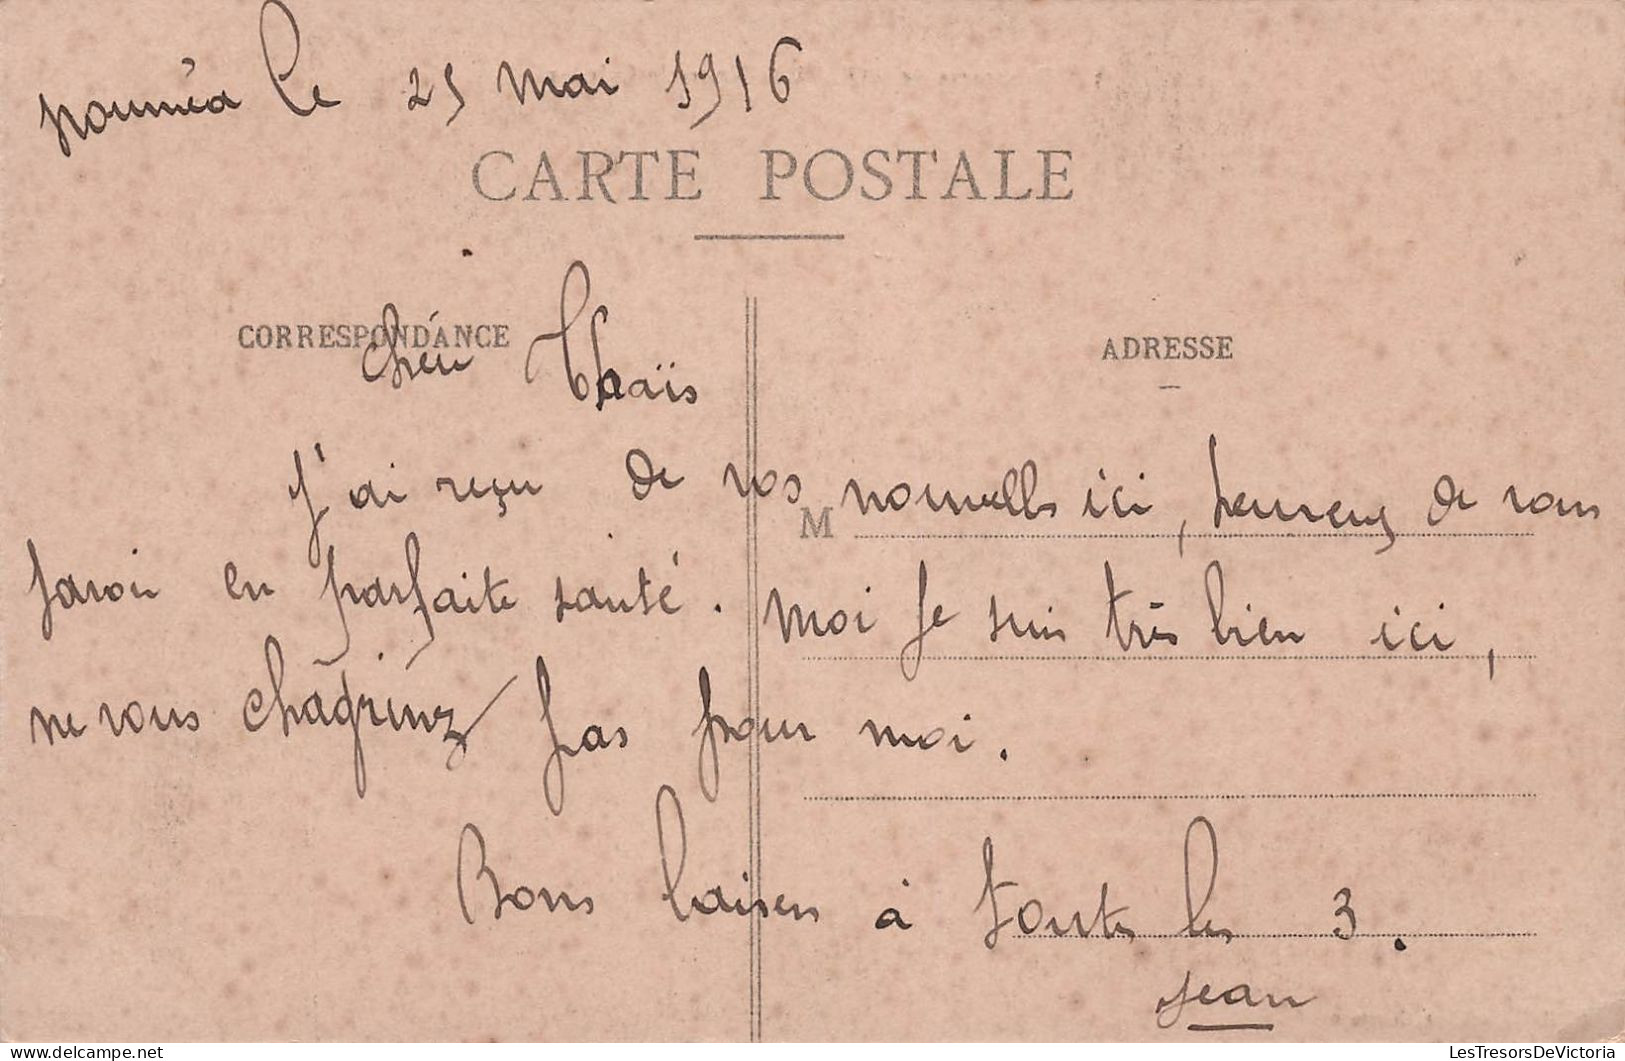 Nouméa le 25 Mai 1916
CARTE POSTALE
CORRESPONDANCE
ADRESSE
Cher Thaïs
J'ai reçu de vos nouvelles ici, heureux de vous
M
savoir en parfaite santé. Moi je suis très bien ici,
ne vous chagrinez pas pour moi.
Bons baisers à toutes les 3.
Jean
LesTresorsDeVictoria
LesTresorsDeVictoria